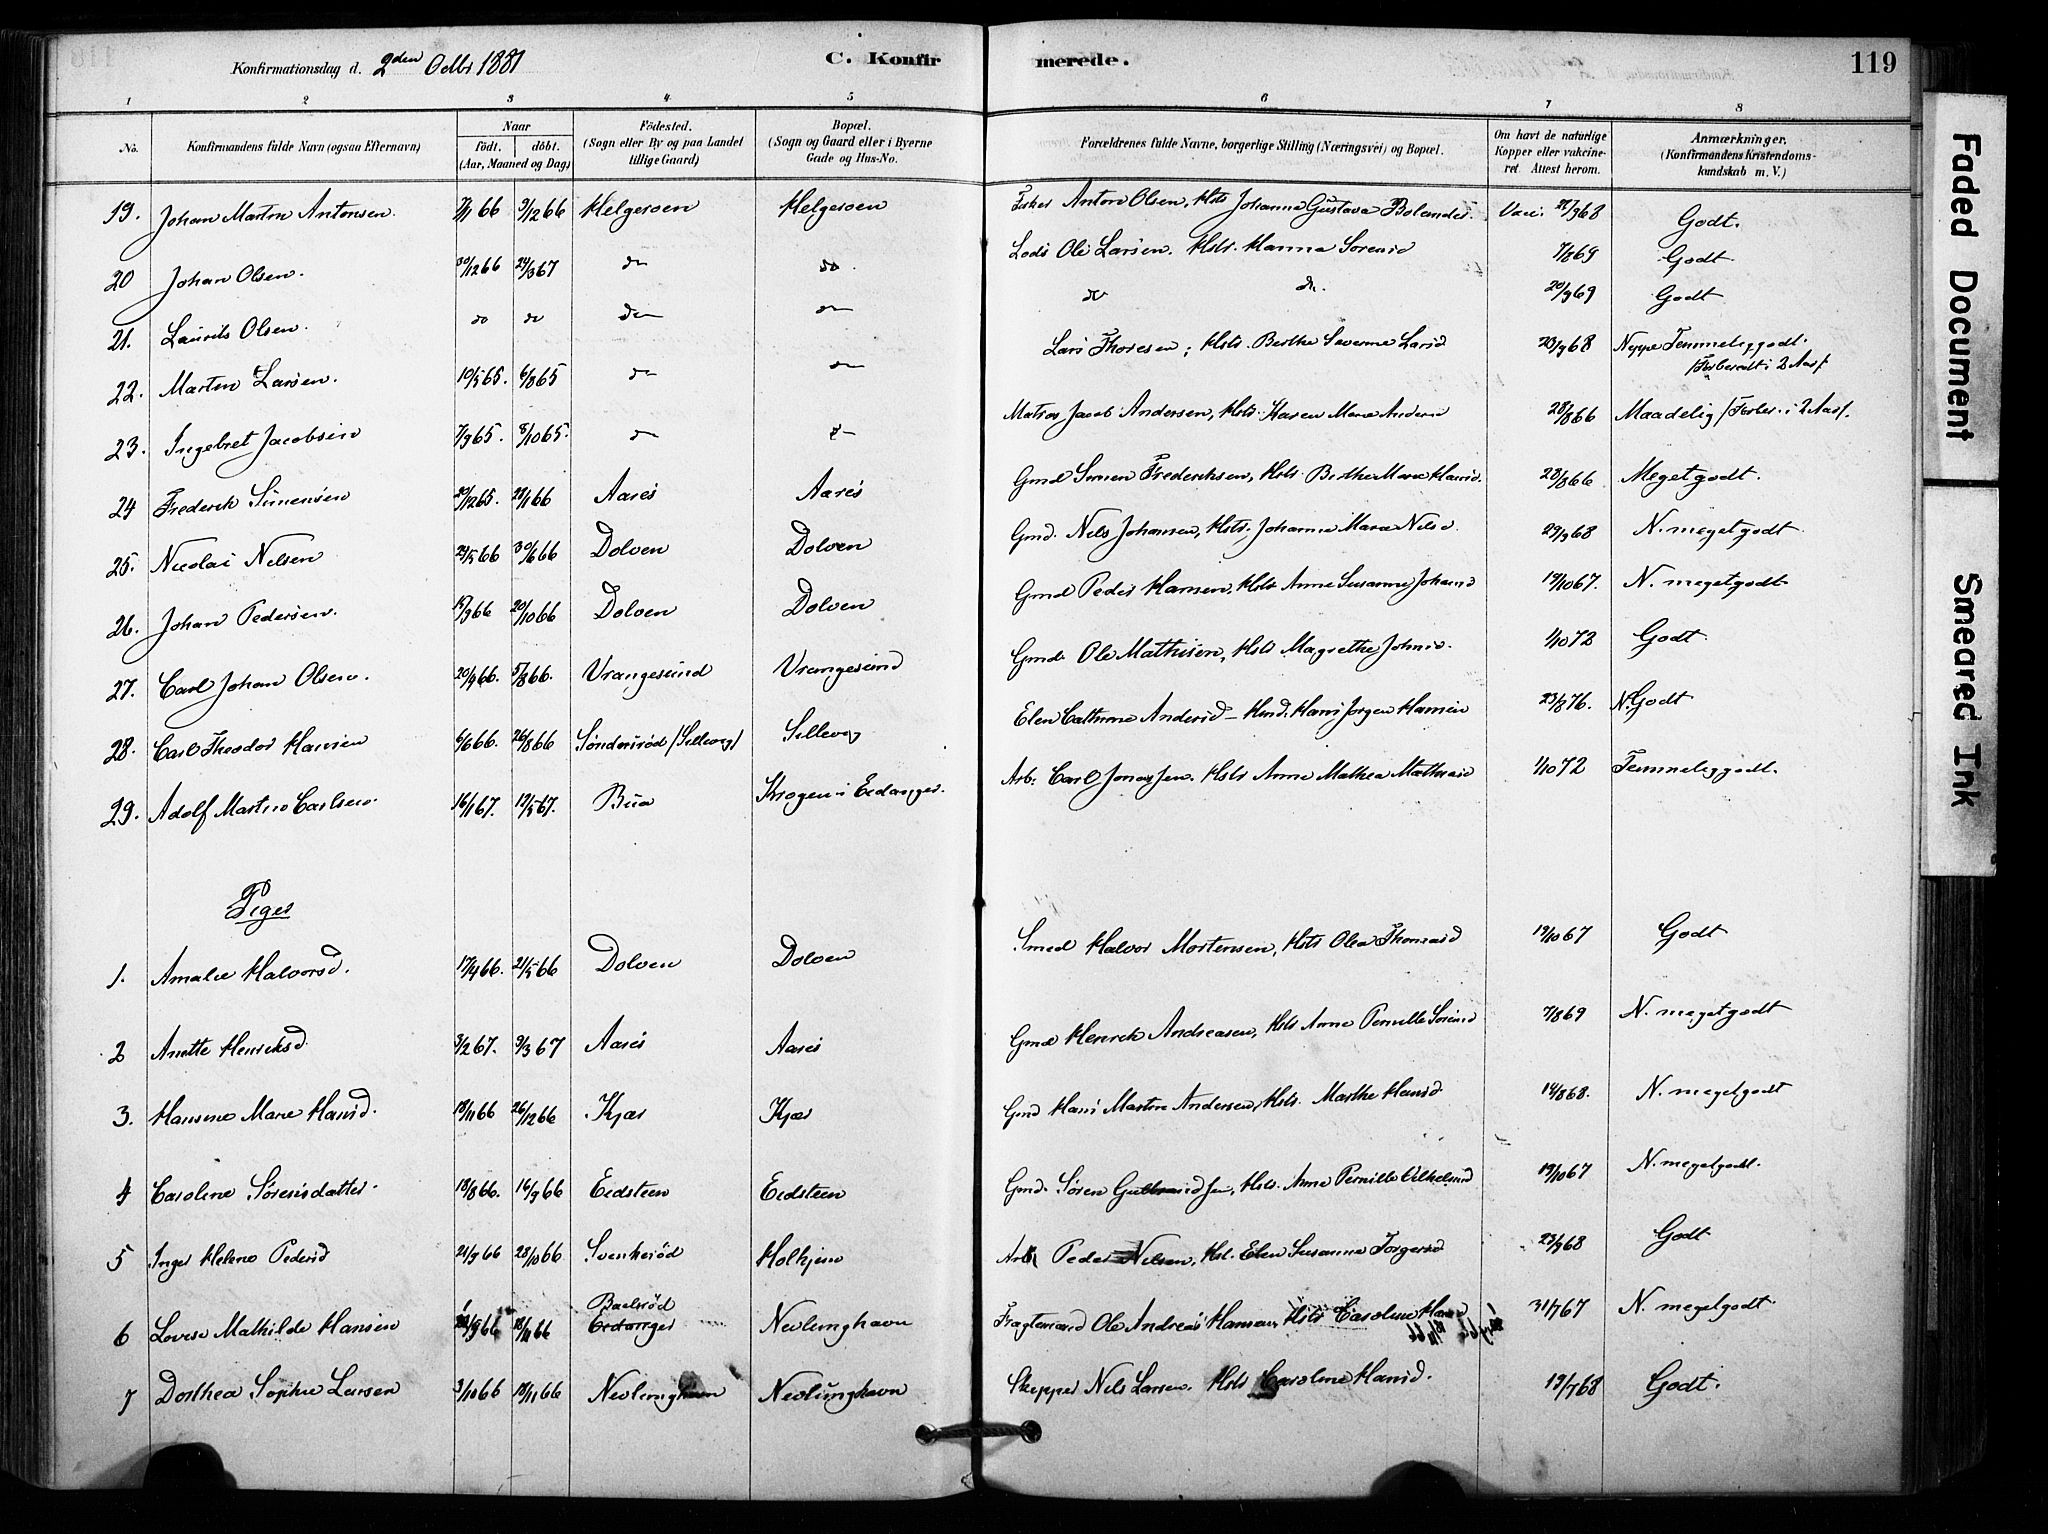 Konfirmationsdag d. 2den Octbr 1881 C. Konfirmerede. 119
1 2 3 4 5 6 7 8
No. Konfirmandens fulde Navn (ogsaa Efternavn) Naar födt. döbt. (Aar, Maaned og Dag) Födested. (Sogn eller By og paa Landet tillige Gaard) Bopæl. (Sogn og Gaard eller i Byerne Gade og Hus-No. Forældrenes fulde Navne, borgerlige Stilling (Næringsvei) og Bopæl. Om havt de naturlige Kopper eller vakcineret. Attest herom. Anmærkninger. (Konfirmandens Kristendomskundskab m. V.)
19. Johan Martin Antonsen. 9/12 66 Helgeroen Helgeroen Fisker Anton Olsen, Hstr Johanne Gustava Bolander. Vacc. 21/9 68 Godt.
20 Johan Olsen. 30/12 66 24/3 67 do do. Lods Ole Larsen. Hstr. Hanna Sørensd 7/8 69 Godt
21. Laurits Olsen. do do do do do do. 20/9 69 Godt
22. Martin Larsen. 10/5 65. 6/8 65 do do Lars Thoresen; Hstr. Berthe Severine Larsd 23/9 68 Neppe Temmeliggodt. /Forberedt i 2 Aar/
23. Ingebret Jacobsen 7/9 65. 8/10 65. do do Matros Jacob Andersen, Hstr. Karen Marie Andersd 28/8 66 Maadelig /Forber. i 2 Aar/.
24 Frederik Simensen 20/12 65. 28/1 66 Aarøs Aarøs Gmd Simen Frederiksen, Hstr Berthe Marie Hansd. 28/8 66 Megetgodt.
25. Nicolai Nilsen 24/5 66 30/6 66 Dolven Dolven Gmd. Nils Johansen, Hstr. Johanne Marie Nilsd. 29/9 68 N. megetgodt
26. Johan Pedersen. 17/9 66 20/10 66 Dolven Dolven Gmd Peder Hansen, Hstr Anne Susanne Johansd 19/10 67. N. megetgodt
27. Carl Johan Olsen. 20/4 66. 5/8 66. Vrangesund Vrangesund Gmd. Ole Mathisen, Hstr Magrethe Johnsd. 1/10 72 Godt
28. Carl Theodor Hansen 6/6 66. 26/8 66 Söndersröd /Silleveg/ Silleveg Elen Cathrine Andersd - Hmd. Hans Jørgen Hansen 23/8 76. N. Godt
29. Adolf Martin Carlsen. 16/1 67. 19/5 67. Bua Krogen i Eidanger. Arb: Carl Jonasen. Hstr Anne Mathea Mathisd 1/10 72 Temmeliggodt.
Piger
1. Amalie Halvorsd. 17/4 66. 21/5 66 Dolven Dolven Smed Halvor Mortensen, Hstr Olea Thomasd 19/10 67 Godt
2 Anette Henriksd 3/2 67. 9/3 67 Aarøs Aarøs Gmd Henrik Andreasen, Hstr Anne Pernille Sørensd 7/8 69 N. megetgodt
3. Hansine Marie Hansd. 18/11 66 26/12 66 Kjær Kjær Gmd Hans Martin Andersen, Hstr. Marthe Hansd. 14/8 68. N. megetgodt
4 Caroline Sørensdatter. 18/8 66. 16/9 66 Eidsteen Eidsteen Gmd. Søren Gulbrandsen, Hstr. Anne Pernille Vilhelmsd 19/10 67 N. megetgodt.
5 Inger Helene Pedersd 21/9 66 28/10 66 Svenkeröd Holhjem Arb. Peder Nilsen, Hstr. Elen Susanne Torgersd 23/9 68 Godt
6 Lovise Mathilde Hansen 18/11 66 Barlröd Eidanger Nevlunghavn Fragtemand Ole Andreas Hansen, Hstr Caroline Hansd 31/7 67 N. megetgodt
7 Dorthea Sophie Larsen 3/10 66 18/11 66 Nevlunghavn Nevlunghavn Skipper Nils Larsen. Hstr Caroline Hansd. 19/7 68 Godt.
Faded Document
Smeared Ink